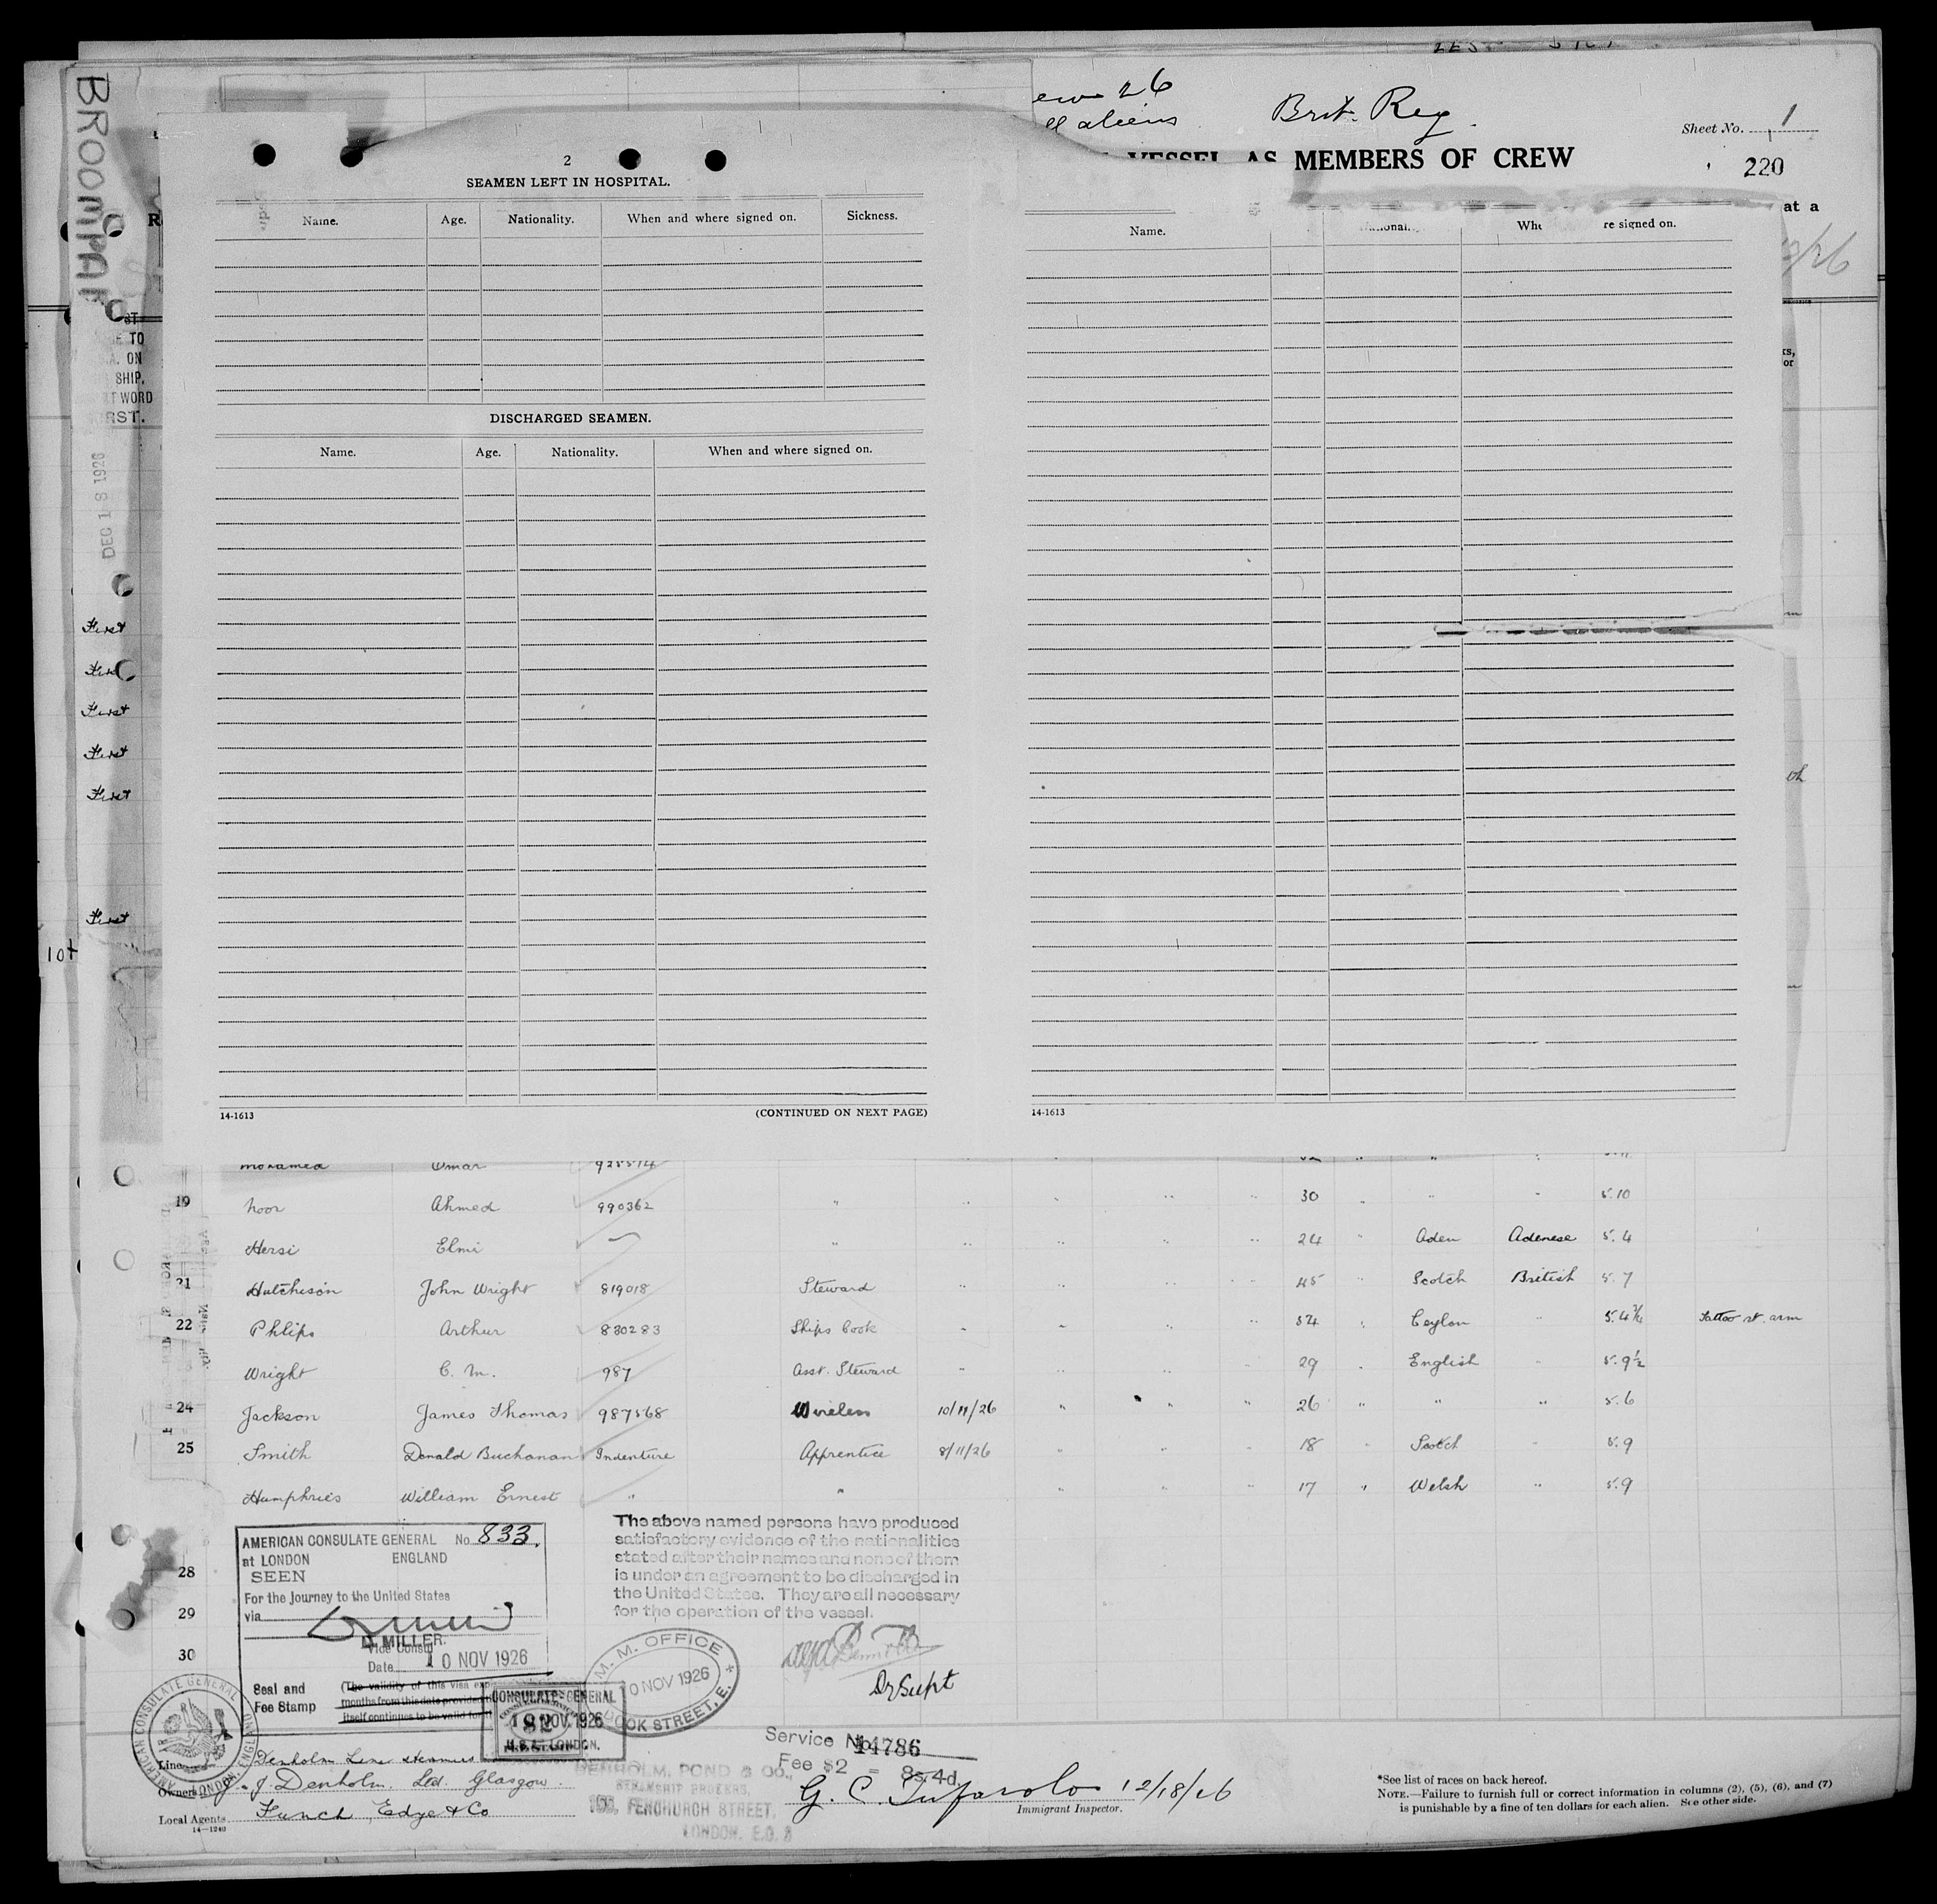 BROOMHAR
ew 26
ll aliens
Brit. Reg.
Sheet No. 1
VESSEL AS MEMBERS OF CREW
220
at a
2
SEAMEN LEFT IN HOSPITAL.
Name. Age. Nationality. When and where signed on. Sickness.
Name. When re signed on.
DISCHARGED SEAMEN.
Name. Age. Nationality. When and where signed on.
14-1613 (CONTINUED ON NEXT PAGE)
14-1613
TO
ON
SHIP.
WORD
RST.
DEC 18 1926
First
First
First
First
First
First
10+
Mohamed Omar 925514
19 Noor Ahmed 990362 " " " " " 30 " " " 5.10
Hersi Elmi " " " " " 24 " Aden Adenese 5.4
21 Hutcheson John Wright 819018 Steward " " " " 45 " Scotch British 5.7
22 Phlips Arthur 830283 Ships Cook " " " " 54 " Ceylon " 5.4¾ Tattoo rt. arm
Wright C. M. 987 Asst. Steward " " " " 29 " English " 5.9½
24 Jackson James Thomas 987568 Wireless 10/11/26 " " " 26 " " " 5.6
25 Smith Donald Buchanan Indenture Apprentice 8/11/26 " " " 18 " Scotch " 5.9
Humphries William Ernest " " " " " 17 " Welsh " 5.9
28
29
30
AMERICAN CONSULATE GENERAL No. 833.
at LONDON ENGLAND
SEEN
For the Journey to the United States
via
D. MILLER.
Vice Consul
Date 10 NOV 1926
Seal and
Fee Stamp
(The validity of this visa
months from this date provided
itself continues to be valid for
AMERICAN CONSULATE GENERAL LONDON, ENGLAND
CONSULATE-GENERAL
10 NOV. 1926
U.S.A. LONDON.
The above named persons have produced
satisfactory evidence of the nationalities
stated after their names and none of them
is under an agreement to be discharged in
the United States. They are all necessary
for the operation of the vessel.
M. M. OFFICE
10 NOV 1926
DOCK STREET, E.
Dy Supt
Service No. 14786
Fee $2 = 8s.4d.
Line Denholm Line Steamers
Owners J. & J. Denholm. Ltd. Glasgow.
Local Agents Funch, Edye & Co
14—1240
DENHOLM, POND & CO.,
STEAMSHIP BROKERS,
FENCHURCH STREET,
LONDON. E.C. 3
G. C. Tufarolo 12/18/26
Immigrant Inspector.
*See list of races on back hereof.
NOTE.—Failure to furnish full or correct information in columns (2), (5), (6), and (7)
is punishable by a fine of ten dollars for each alien. See other side.